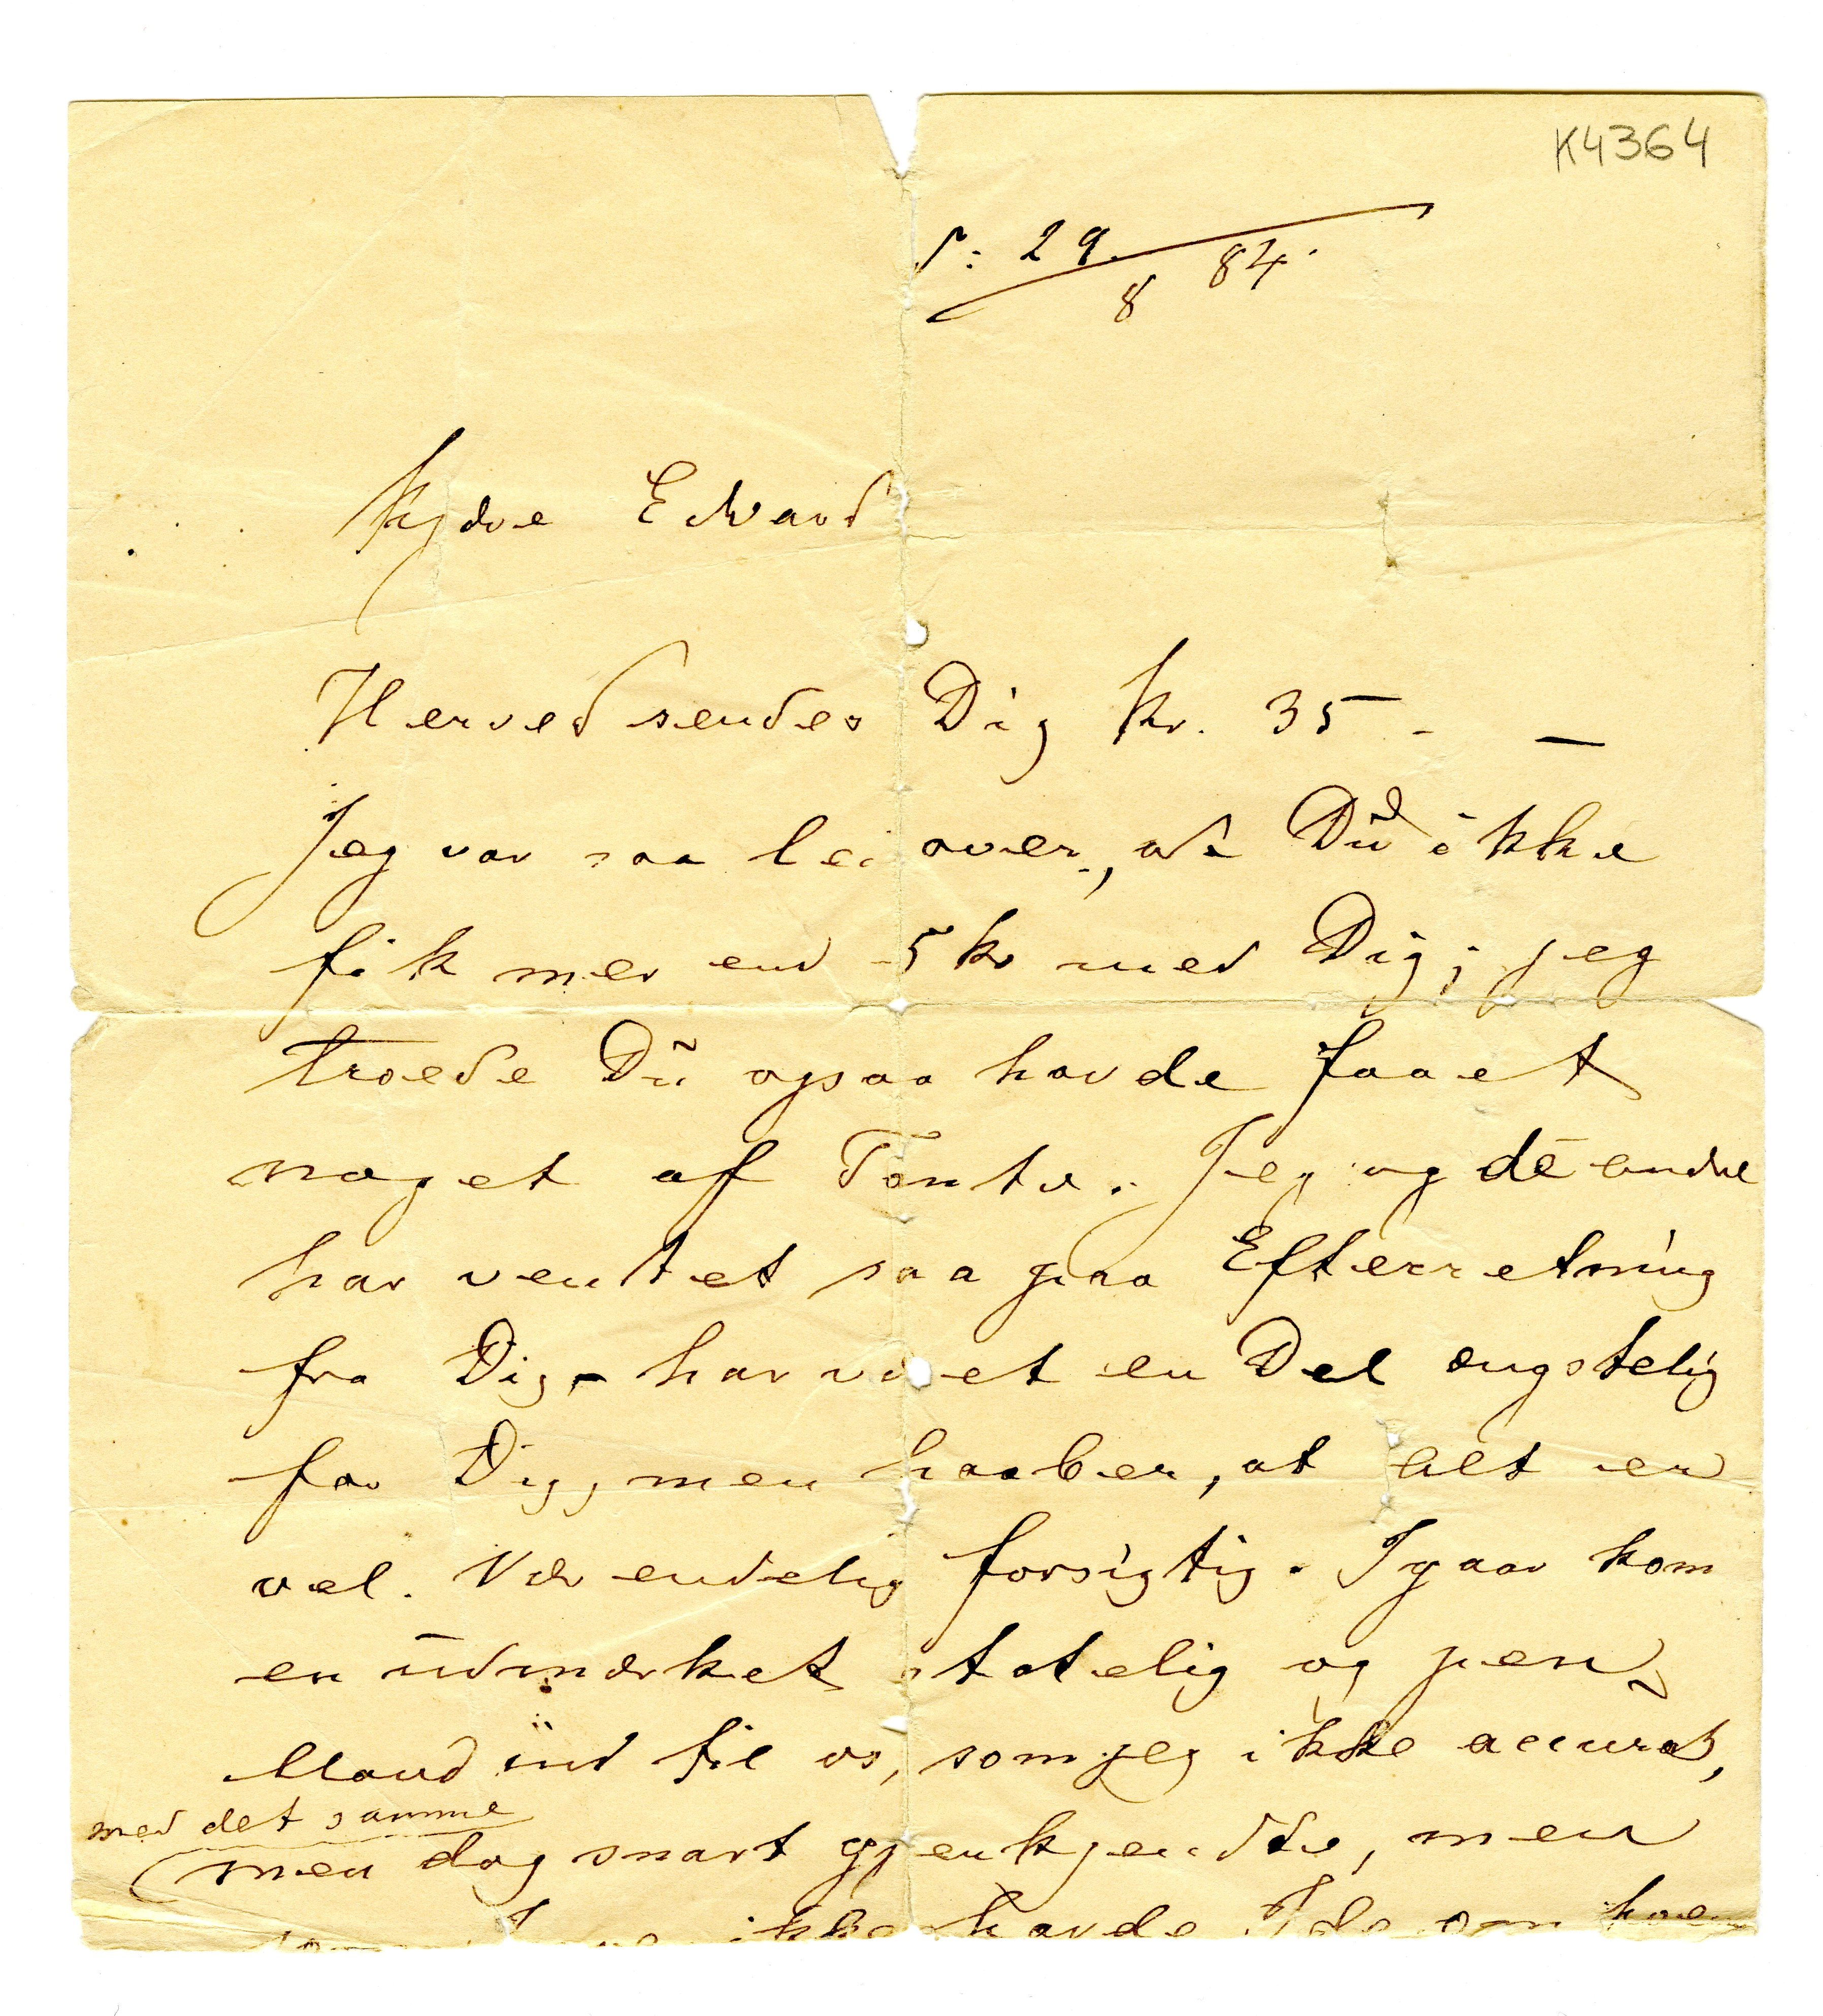 K4364
29/8 84.
Kjære Edvard
Herved sendes Dig Kr. 35 - —
Jeg var saa lei over, at Du ikke
fik mer end 5 kr med Dig; jeg
troede Du ogsaa havde faaet
noget af Tante. Jeg og de andre
har ventet saa paa Efterretning
fra Dig - har været en Del ængstelig
for Dig, men haaber, at alt er
vel. Vær endelig forsigtig. Igaar kom
en udmærket statelig og pen
Mand ind til os, som jeg ikke accurat,
med det samme
men dog snart gjenkjendte, men
ikke havde Ide om